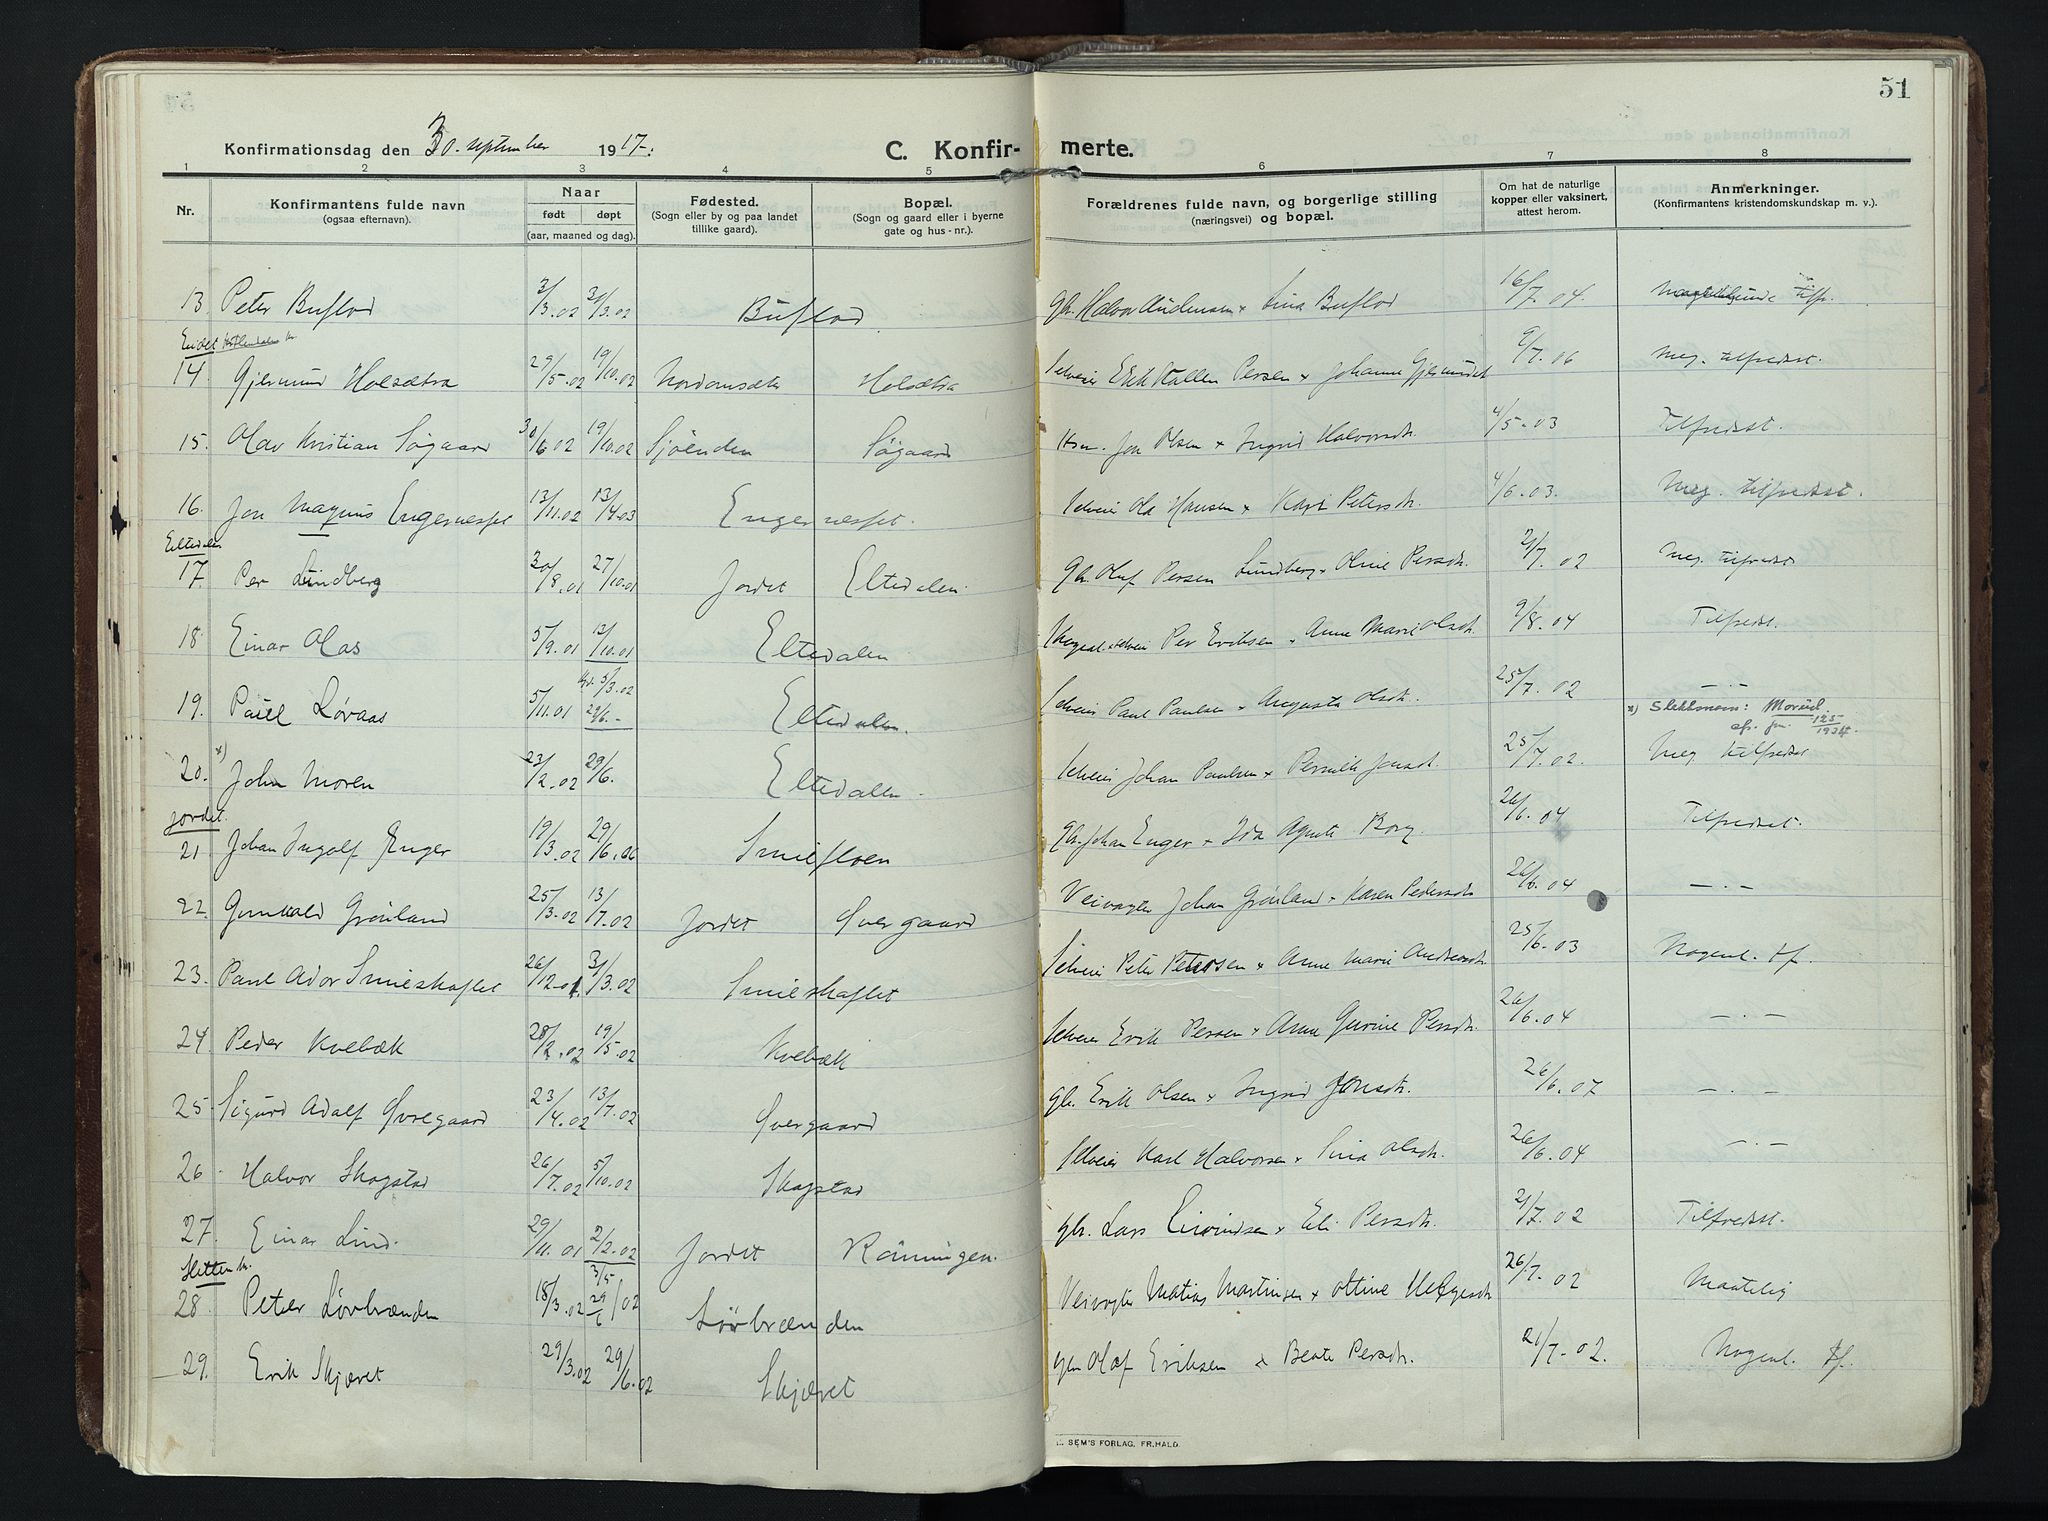 51
Konfirmationsdag den 30. september 1917.
C. Konfirmerte.
1 2 3 4 5 6 7 8
Nr.
Konfirmantens fulde navn
(ogsaa efternavn).
Naar
født døpt
(aar, maaned og dag).
Fødested.
(Sogn eller by og paa landet
tillike gaard).
Bopæl.
(Sogn og gaard eller i byerne
gate og hus-nr.).
Forældrenes fulde navn, og borgerlige stilling
(næringsvei) og bopæl.
Om hat de naturlige
kopper eller vaksinert,
attest herom.
Anmerkninger.
(Konfirmantens kristendomskundskap m. v.).
13 Peter Buflod 3/3.02 31/3.02 Buflod Gbr. Halvor Andersen + Lina Buflod 16/7.04
14 Gjermund Holsætra 29/5.02 19/10.02 Nordomsæter Holsætra Selveier Erik Kallen Persen + Johanne Gjermundst 9/7.06 Meg. tilfredsst.
15. Olav Kristian Søgaard 30/6 02 19/10.02 Sjøenden Søgaard Hsm. Jon Olsen + Ingrid Halvorsdtr. 4/5-03 Tilfredsst.
16. Jon Magnus Engernesset 13/11.02 13/4.03 Engernesset. Selveier Ola Hansen + Kari Petersdtr. 4/6-03. Meg. tilfredsst.
Eltedalen
17. Per Lundberg 30/8.01 27/10.01 Jordet Eltedalen. Gbr. Oluf Persen Lundberg + Oline Persdtr. 21/7.02 Meg. tilfredsst
18. Einar Moas 5/9.01 13/10.01 Eltedalen Per Eriksen + Anne Marie Olsdtr. 9/8.04 Tilfredsst.
19. Paul Løvaas 5/11.01 5/3.02 29/6.- Eltedalen. Selveier Paul Paulsen + Augusta Olsdtr. 25/7.02 -.-
x) Slektsnavn: Moren.
125/1934
20. x) John Moren 23/2.02 29/6. Eltedalen Selveier Johan Paulsen + Pernille Jonsdtr. 25/7.02. Meg tilfredsst
Jordet.
21 Johan Ingolf Enger 19/3.02 29/6.06 Smiefloen Gbr. Johan Enger + Ida Agnete Borg. 26/6.04 Tilfredsst.
22. Gunvald Grønland 25/3.02 13/7.02 Jordet Øvergaard Veivogter Johan Grønland + Karen Pedersdtr 26/6.04 -.-
23. Paul Ador Smieskaftet 26/12-01. 31/3.02 Smieskaftet Selveier Peter Petersen + Anne Marie Andreasdtr 25/6.03 Nogenl. tf.
24. Peder Kvebæk 28/2.02 19/5.02 Kvebæk Selveier Erik Persen + Anne Gurine Persdtr. 26/6.04 -.-
25 Sigurd Adolf Øvregaard 23/4.02 13/7.02 Øvergaard Gbr. Erik Olsen + Ingrid Jonsdtr. 26/6.07 -.-
26. Halvor Skogstad 26/7.02 5/10.02 Skogstad Selveier Karl Halvorsen + Sina Olsdtr. 26/6.04 -.-
27. Einar Lind. 29/11.01 2/2.02 Jordet Rønningen. Gbr. Lars + Eli Persdtr. 21/7.02 Tilfredsst.
28. Peter Lørbrænden 18/3.02 3/5 29/6 02 Lørbrænden Veivogter Matias Martinsen + Ottine Helgesdtr 26/7.02 Maatelig
29. Erik Skjæret 29/3.02 29/6.02 Skjæret Gbr Olaf Eriksen + Beate Persdtr. 21/7-02. Nogenl. tf.
SEM'S FORLAG, FR.HALD